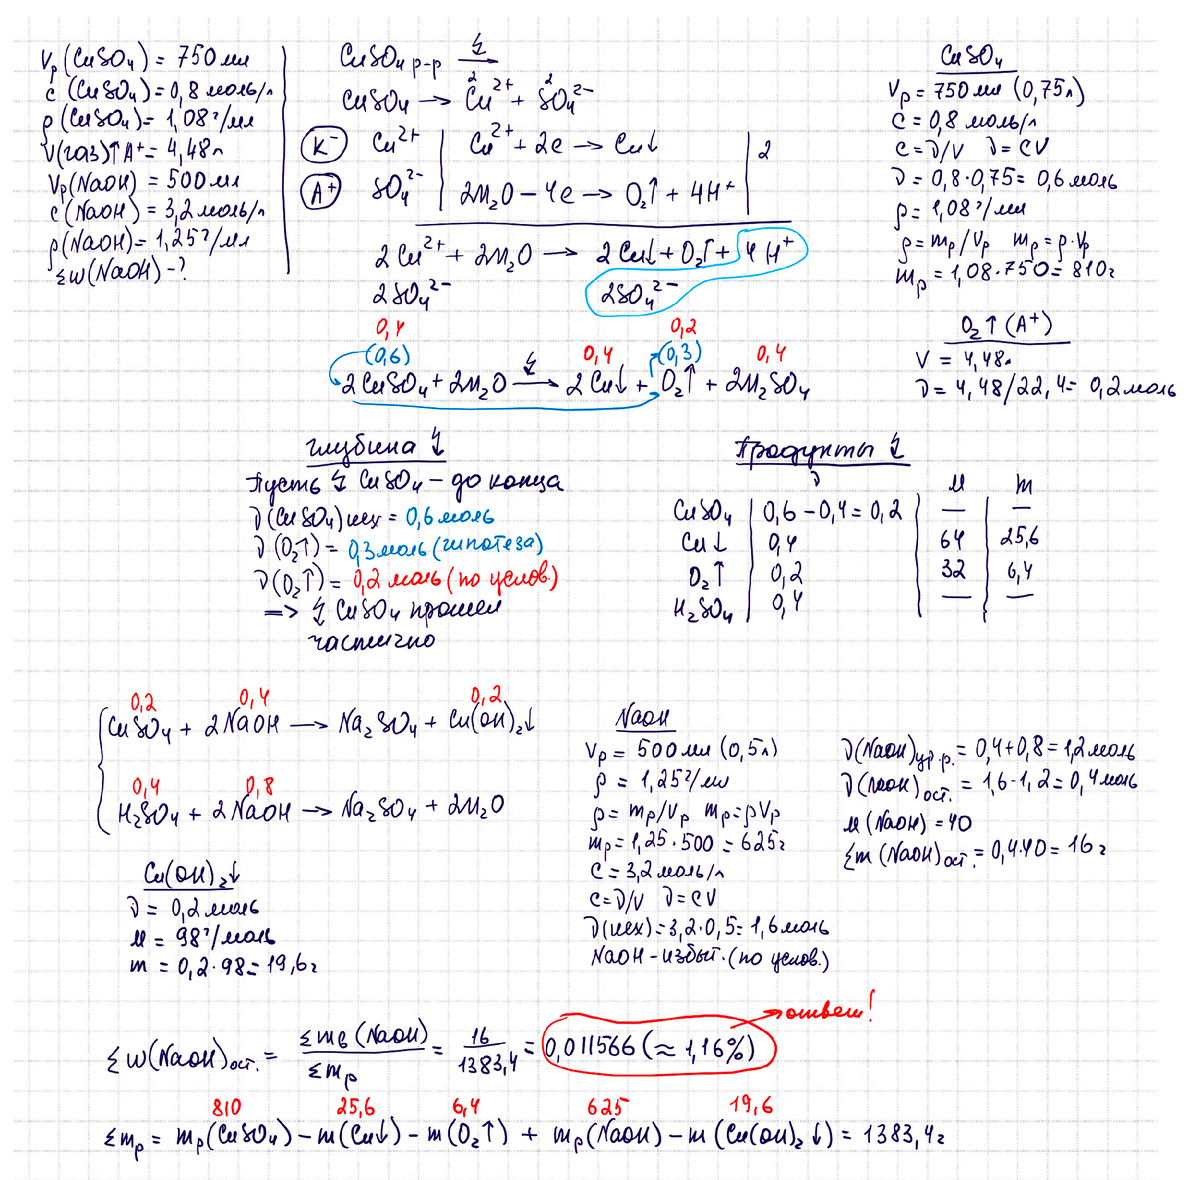 Vр(CuSO₄) = 750 мл
c (CuSO₄) = 0,8 моль/л
ρ (CuSO₄) = 1,08 г/мл
V(газ)↑A⁺ = 4,48л
Vр(NaOH) = 500 мл
c(NaOH) = 3,2 моль/л
ρ(NaOH) = 1,25 г/мл
Σω(NaOH) - ?
CuSO₄ р-р ↯→
CuSO₄ → Cu²⁺ + SO₄²⁻
2 2
K⁻ Cu²⁺ | Cu²⁺ + 2e → Cu↓ | 2
A⁺ SO₄²⁻ | 2H₂O - 4e → O₂↑ + 4H⁺ |
2Cu²⁺ + 2H₂O → 2Cu↓ + O₂↑ + 4H⁺
2SO₄²⁻ 2SO₄²⁻
0,4 0,2
(0,6) 0,4 (0,3) 0,4
2CuSO₄ + 2H₂O ↯→ 2Cu↓ + O₂↑ + 2H₂SO₄
CuSO₄
Vр = 750 мл (0,75л)
c = 0,8 моль/л
c = ν/V ν = cV
ν = 0,8·0,75 = 0,6 моль
ρ = 1,08 г/мл
ρ = mр/Vр mр = ρ·Vр
mр = 1,08·750 = 810г
O₂↑ (A⁺)
V = 4,48л
ν = 4,48/22,4 = 0,2 моль
глубина ↯
Пусть ↯ CuSO₄ - до конца
ν (CuSO₄) исх = 0,6 моль
ν (O₂↑) = 0,3 моль (гипотеза)
ν (O₂↑) = 0,2 моль (по услов.)
=> ↯ CuSO₄ прошел
частично
Продукты ↯
ν M m
CuSO₄ | 0,6 - 0,4 = 0,2 | — | —
Cu↓ | 0,4 | 64 | 25,6
O₂↑ | 0,2 | 32 | 6,4
H₂SO₄ | 0,4 | — | —
0,2 0,4 0,2
CuSO₄ + 2NaOH → Na₂SO₄ + Cu(OH)₂↓
0,4 0,8
H₂SO₄ + 2NaOH → Na₂SO₄ + 2H₂O
Cu(OH)₂↓
ν = 0,2 моль
M = 98 г/моль
m = 0,2·98 = 19,6г
NaOH
Vр = 500 мл (0,5л)
ρ = 1,25 г/мл
ρ = mр/Vр mр = ρVр
mр = 1,25·500 = 625г
c = 3,2 моль/л
c = ν/V ν = cV
ν(исх) = 3,2·0,5 = 1,6 моль
NaOH - избыт. (по услов.)
ν(NaOH)ур.р. = 0,4+0,8 = 1,2 моль
ν(NaOH)ост. = 1,6-1,2 = 0,4 моль
M (NaOH) = 40
Σm (NaOH)ост. = 0,4·40 = 16г
ответ!
Σω(NaOH)ост. = Σmв (NaOH) / Σmр = 16 / 1383,4 = 0,011566 (≈ 1,16%)
810 25,6 6,4 625 19,6
Σmр = mр(CuSO₄) - m(Cu↓) - m(O₂↑) + mр(NaOH) - m (Cu(OH)₂↓) = 1383,4г